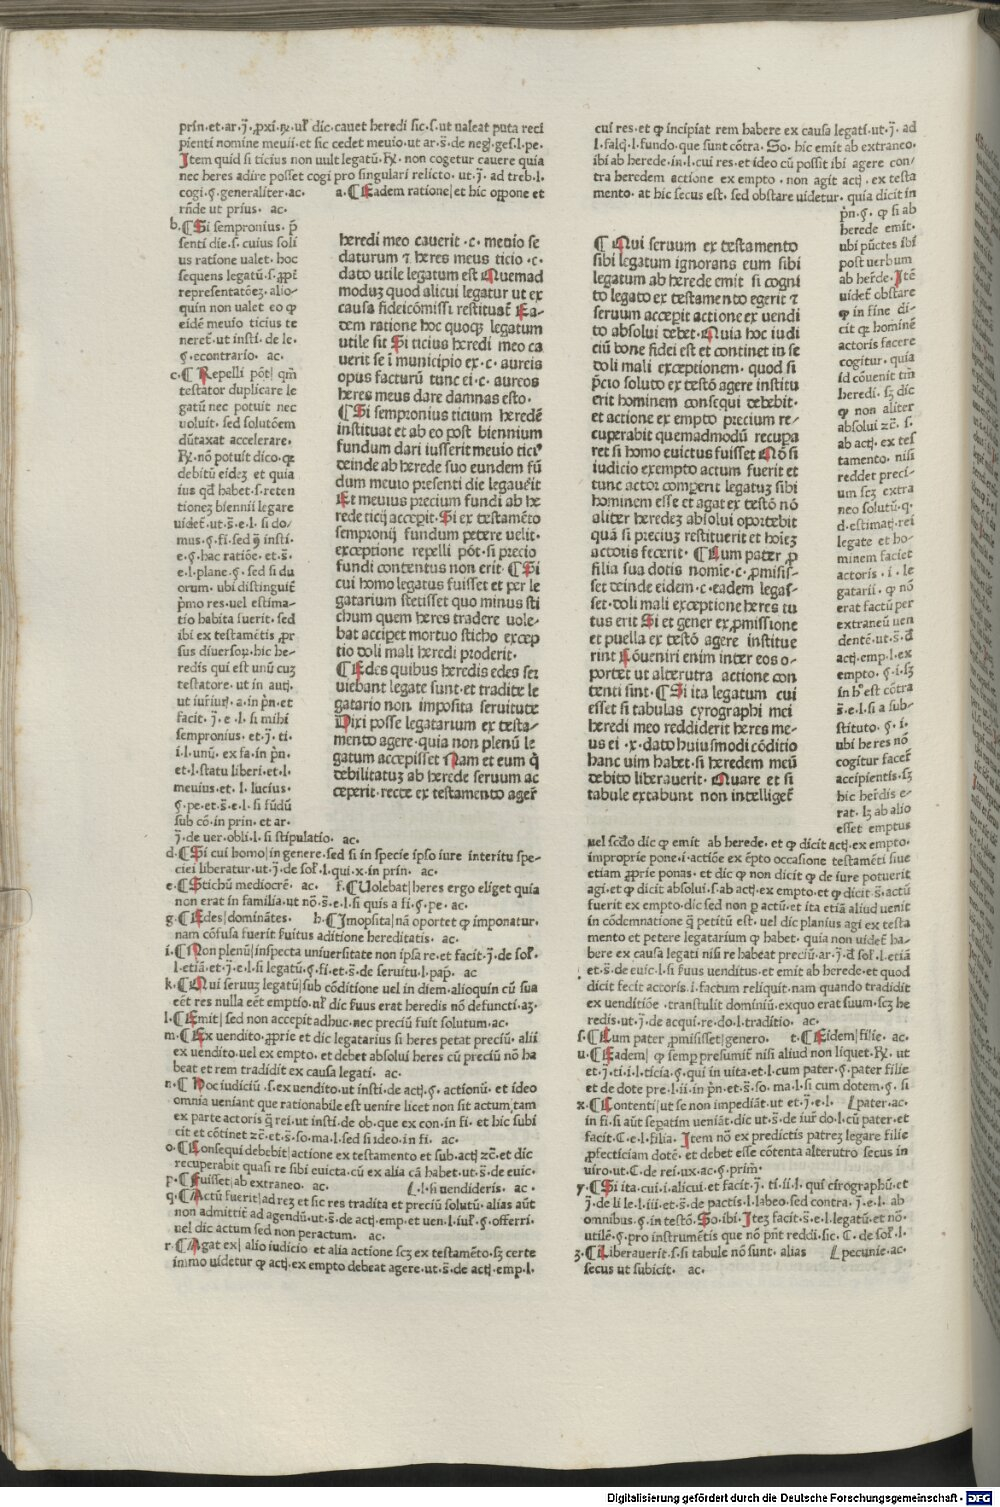 prin·et·ar·ĵ·ꝓxi·ꝶ·ul̓ dic·cauet heredi sic·s·ut ualeat puta reci
pienti nomine meuii·et sic cedet meuio·ut ar·s̄·de neg·ges·l·pe·
Item quid si ticius non uult legatū·ꝶ· non cogetur cauere quia
nec heres adire posset cogi pro singulari relicto·ut·ĵ· ad treb·l·
cogi·§·generaliter·ac·      a·¶ Eadem ratione|et hic oppone et
rn̄de ut prius· ac·
b·¶ Si sempronius·p̄
senti die·s·cuius soli
us ratione ualet·hoc
sequens legatū·s·ꝓpt̄
representatōeꝫ·alio-
quin non ualet eo ꝙ
eidē meuio ticius te
neret̄·ut insti·de le·
§·econtrario· ac·
c·¶ Repelli pōt| qm̄
testator duplicare le
gatū nec potuit nec
uoluit· sed solutōem
dūtaxat accelerare·
ꝶ·nō potuit dico·qꝫ
debitū eideꝫ et quia
ius qd̄ habet·s·reten
tioneꝫ biennii legare
uidet̄·ut·s̄·e·l· si do/
mus·§·fi·sed ꝙ insti·
e·§·hac ratiōe·et·s̄·
e·l·plane·§·sed si du
orum· ubi distinguit̄
p̄mo res·uel estima-
tio habita fuerit·sed
ibi ex testamētis ꝓr
sus diuersoꝝ·hic he-
redis qui est unū cuꝫ
testatore·ut in autj·
ut iur̄iur̄j·a·in pn̄·et
facit·ĵ·e·l·si mihi
sempronius·et·ĵ·ti·
i·l·unū·ex fa·in pn̄·
et·l·statu liberi·et·l·
meuius·et·l·lucius·
§·pe·et·s̄·e·l·si fūdū
sub cō·in prin·et ar·
ĵ·de uer·obli·l·si stipulatio· ac·
d·¶ Si cui homo|in genere·sed si in specie ipso iure interitu spe-
ciei liberatur·ut·ĵ·de sol̓·l·qui·x·in prin· ac·
e·¶ Stichū mediocrē· ac·   f·¶ Uolebat|heres ergo eliget quia
non erat in familia·ut nō·s̄·e·l·si quis a fi·§·pe· ac·
g·¶ Edes|dominātes·   h·¶ Imposita|nā oportet ꝙ imponatur·
nam cōfusa fuerit s̓uitus aditione hereditatis· ac·
i·¶ Non plenū|inspecta uniuersitate non ipsa re·et facit·ĵ·de sol̓·
l·etiā·et·ĵ·e·l·si legatū·§·fi·et·s̄·de seruitu·l·pap̄· ac
k·¶ Qui seruuꝫ legatū|sub cōditione uel in diem·alioquin cū sua
eēt res nulla eēt emptio·ul̓ dic s̓uus erat heredis nō defuncti·aꝫ·
l·¶ Emit| sed non accepit adhuc·nec preciū fuit solutum·ac·
m·¶ Ex uendito·ꝓprie et dic legatarius si heres petat preciū·alii
ex uendito·uel ex empto·et debet absolui heres cū preciū nō ha
beat et rem tradidit ex causa legati· ac·
n·¶ Hoc iudiciū·s·ex uendito·ut insti·de actj·§·actionū·et ideo
omnia ueniant que rationabile est uenire licet non sit actum·tam
ex parte actoris q̄ rei·ut insti·de ob·que ex con·in fi·et hic subi
cit et cōtinet zc̄·et·s̄·so·ma·l·sed si ideo·in fi· ac·
o·¶ Consequi debebit|actione ex testamento et sub·actj zc̄·et dic
recuperabit quasi re sibi euicta·cū ex alia cā habet·ut·s̄·de euic·
p·¶ Fuisset|ab extraneo· ac·     l·l·si uendideris· ac·
q·¶ Actū fuerit|ad reꝫ et sic res tradita et preciū solutū·alias aūt
non admittit̄ ad agendū·ut·s̄·de actj·emp·et uen·l·iul̓·§·offerri·
uel dic actum sed non peractum· ac·
r·¶ Agat ex| alio iudicio et alia actione scꝫ ex testamēto·sꝫ certe
immo uidetur ꝙ actj·ex empto debeat agere·ut·s̄·de actj·emp·l·
heredi meo cauerit·c·meuio se
daturum ⁊ heres meus ticio·c·
dato utile legatum est Quemad
moduꝫ quod alicui legatur ut ex
causa fideicōmissi restituat̄ Ea-
dem ratione hoc quoqꝫ legatum
utile sit Si ticius heredi meo ca
uerit se ī municipio ex·c·aureis
opus facturū tunc ei·c·aureos
heres meus dare damnas esto·
¶ Si sempronius ticium heredē
instituat et ab eo post biennium
fundum dari iusserit meuio tici⁹
deinde ab herede suo eundem fū
dum meuio presenti die legauerit
Et meuius precium fundi ab he
rede ticij acceperit·Si ex testamēto
sempronij fundum petere uelit·
exceptione repelli pōt·si precio
fundi contentus non erit·¶ Si
cui homo legatus fuisset et per le
gatarium stetisset quo minus sti
chum quem heres tradere uole-
bat acciperet mortuo sticho excep
tio doli mali heredi proderit·
¶ Edes quibus heredis edes ser
uiebant legate sunt·et tradite le
gatario non imposita seruitute
Dixi posse legatarium ex testa-
mento agere·quia non plenū le
gatum accepisset Nam et eum q̄
debilitatuꝫ ab herede seruum ac
ceperit·recte ex testamento ager̄
cui res·et ꝙ incipiat rem habere ex causa legati·ut·ĵ· ad
l·falcj·l·fundo·que sunt cōtra·So·hic emit ab extraneo·
ibi ab herede·in·l·cui res·et ideo cū possit ibi agere con/
tra heredem actione ex empto·non agit actj·ex testa
mento·at hic secus est·sed obstare uidetur·quia dicit in
pn̄·§·ꝙ si ab
herede emit·
ubi pūctes ibi
post uerbum
ab her̄de·Itē
uidet̄ obstare
ꝙ in fine di-
cit ꝙ hominē
actoris facere
cogitur·quia
id cōuenit tm̄
heredi·sꝫ dic
ꝙ non aliter
absolui zc̄·s·
ab actj·ex tes
tamento·nisi
reddet preci-
um scꝫ extra
neo solutū·q·
d·estimatj·rei
legate et ho-
minem faciet
actoris·i·le
gatarii·ꝙ nō
erat factū per
extraneū uen
dentē·ut·s̄·d̄
actj·emp·l·ex
empto·§·i·sꝫ
in h⁹ est cōtra
s̄·e·l·si a sub-
stituto·§·i·
ubi heres nō
cogitur facet̄
accipientis·sꝫ
hic her̄dis e-
rat·lꝫ ab alio
esset emptus
¶ Qui seruum ex testamento
sibi legatum ignorans eum sibi
legatum ab herede emit si cogni
to legato ex testamento egerit ⁊
seruum acceperit actione ex uendi
to absolui debet·Quia hoc iudi
ciū bone fidei est et continet in se
doli mali exceptionem·quod si
p̄cio soluto ex testō agere institu
erit hominem consequi debebit·
et actione ex empto precium re-
cuperabit quemadmodū recupa
ret si homo euictus fuisset Nō si
iudicio exempto actum fuerit et
tunc actor compererit legatuꝫ sibi
hominem esse et agat ex testō nō
aliter heredeꝫ absolui oportebit
quā si preciuꝫ restituerit et hoīeꝫ
actoris fecerit·¶ Cum pater ꝓ
filia sua dotis nomīe·c·ꝓmisis-
set deinde eidem·c·eadem legas-
set·doli mali exceptione heres tu
tus erit Si et gener ex ꝓmissione
et puella ex testō agere institue
rint Cōueniri enim inter eos o-
portet ut alterutra actione con
tenti sint·¶ Si ita legatum cui
esset si tabulas cyrographi mei
heredi meo reddiderit heres me-
us ei·x·dato huiusmodi cōditio
hanc uim habet·si heredem meū
debito liberauerit·Quare et si
tabule extabunt non intelliget̄
uel scd̄o dic ꝙ emit ab herede·et ꝙ dicit actj·ex empto·
improprie pone·i·actiōe ex ēpto occasione testamēti siue
etiam ꝓprie ponas·et dic ꝙ non dicit ꝙ de iure potuerit
agi·et ꝙ dicit absolui·s·ab actj·ex empto·et ꝙ dicit·s̄·actū
fuerit ex empto·dic sed non ꝑ actū·et ita etiā aliud uenit
in cōdemnatione q̄ petitū est·uel dic planius agi ex testa
mento et petere legatarium ꝙ habet·quia non uidet̄ ha-
bere ex causa legati nisi re habeat preciū·ar·ĵ·d̄ sol̓·l·etiā
et·s̄·de euic·l·si s̓uus uenditus·et emit ab herede·et quod
dicit fecit actoris·i·factum reliquit·nam quando tradidit
ex uenditiōe·transtulit dominiū·exquo erat suum·scꝫ he
redis·ut·ĵ·de acqui·re·do·l·traditio· ac·
s·¶ Cum pater ꝓmisisset|genero·   t·¶ Eidem|filie· ac·
u·¶ Eadem| ꝙ semꝑ presumit̄ nisi aliud non liquet·ꝶ· ut
et·ĵ·ti·i·l·ticia·§·qui in uita·et·l·cum pater·§·pater filie
et de dote pre·l·ii·in pn̄·et·s̄·so·ma·l·si cum dotem·§·si
x·¶ Contenti|ut se non impediāt·ut et·ĵ·e·l·   l·pater·ac·
in fi·si aūt seꝑatim ueniāt·dic ut·s̄·de iur̄·do·l·cū pater·et
facit·C·e·l·filia· Item nō ex predictis patreꝫ legare filie
ꝓfecticiam dotē·et debet esse cōtenta alterutro secus in
uiro·ut·C·de rei·ux·ac·§·prim̄·
y·¶ Si ita·cui·i·alicui·et facit·ĵ·ti·ii·l·qui cirographū·et
ĵ·de li le·l·iii·et·s̄·de pactis·l·labeo·sed contra·ĵ·e·l·ab
omnibus·§·in testō·So·ibi·Iteꝫ facit·s̄·e·l·legatū·et nō·
utilē·§·pro instrumētis que nō pn̄t reddi·sic·C·de sol̓·l·
z·¶ Liberauerit·s·si tabule nō sunt· alias   l·pecunie·ac·
secus ut subicit· ac·
Digitalisierung gefördert durch die Deutsche Forschungsgemeinschaft · DFG